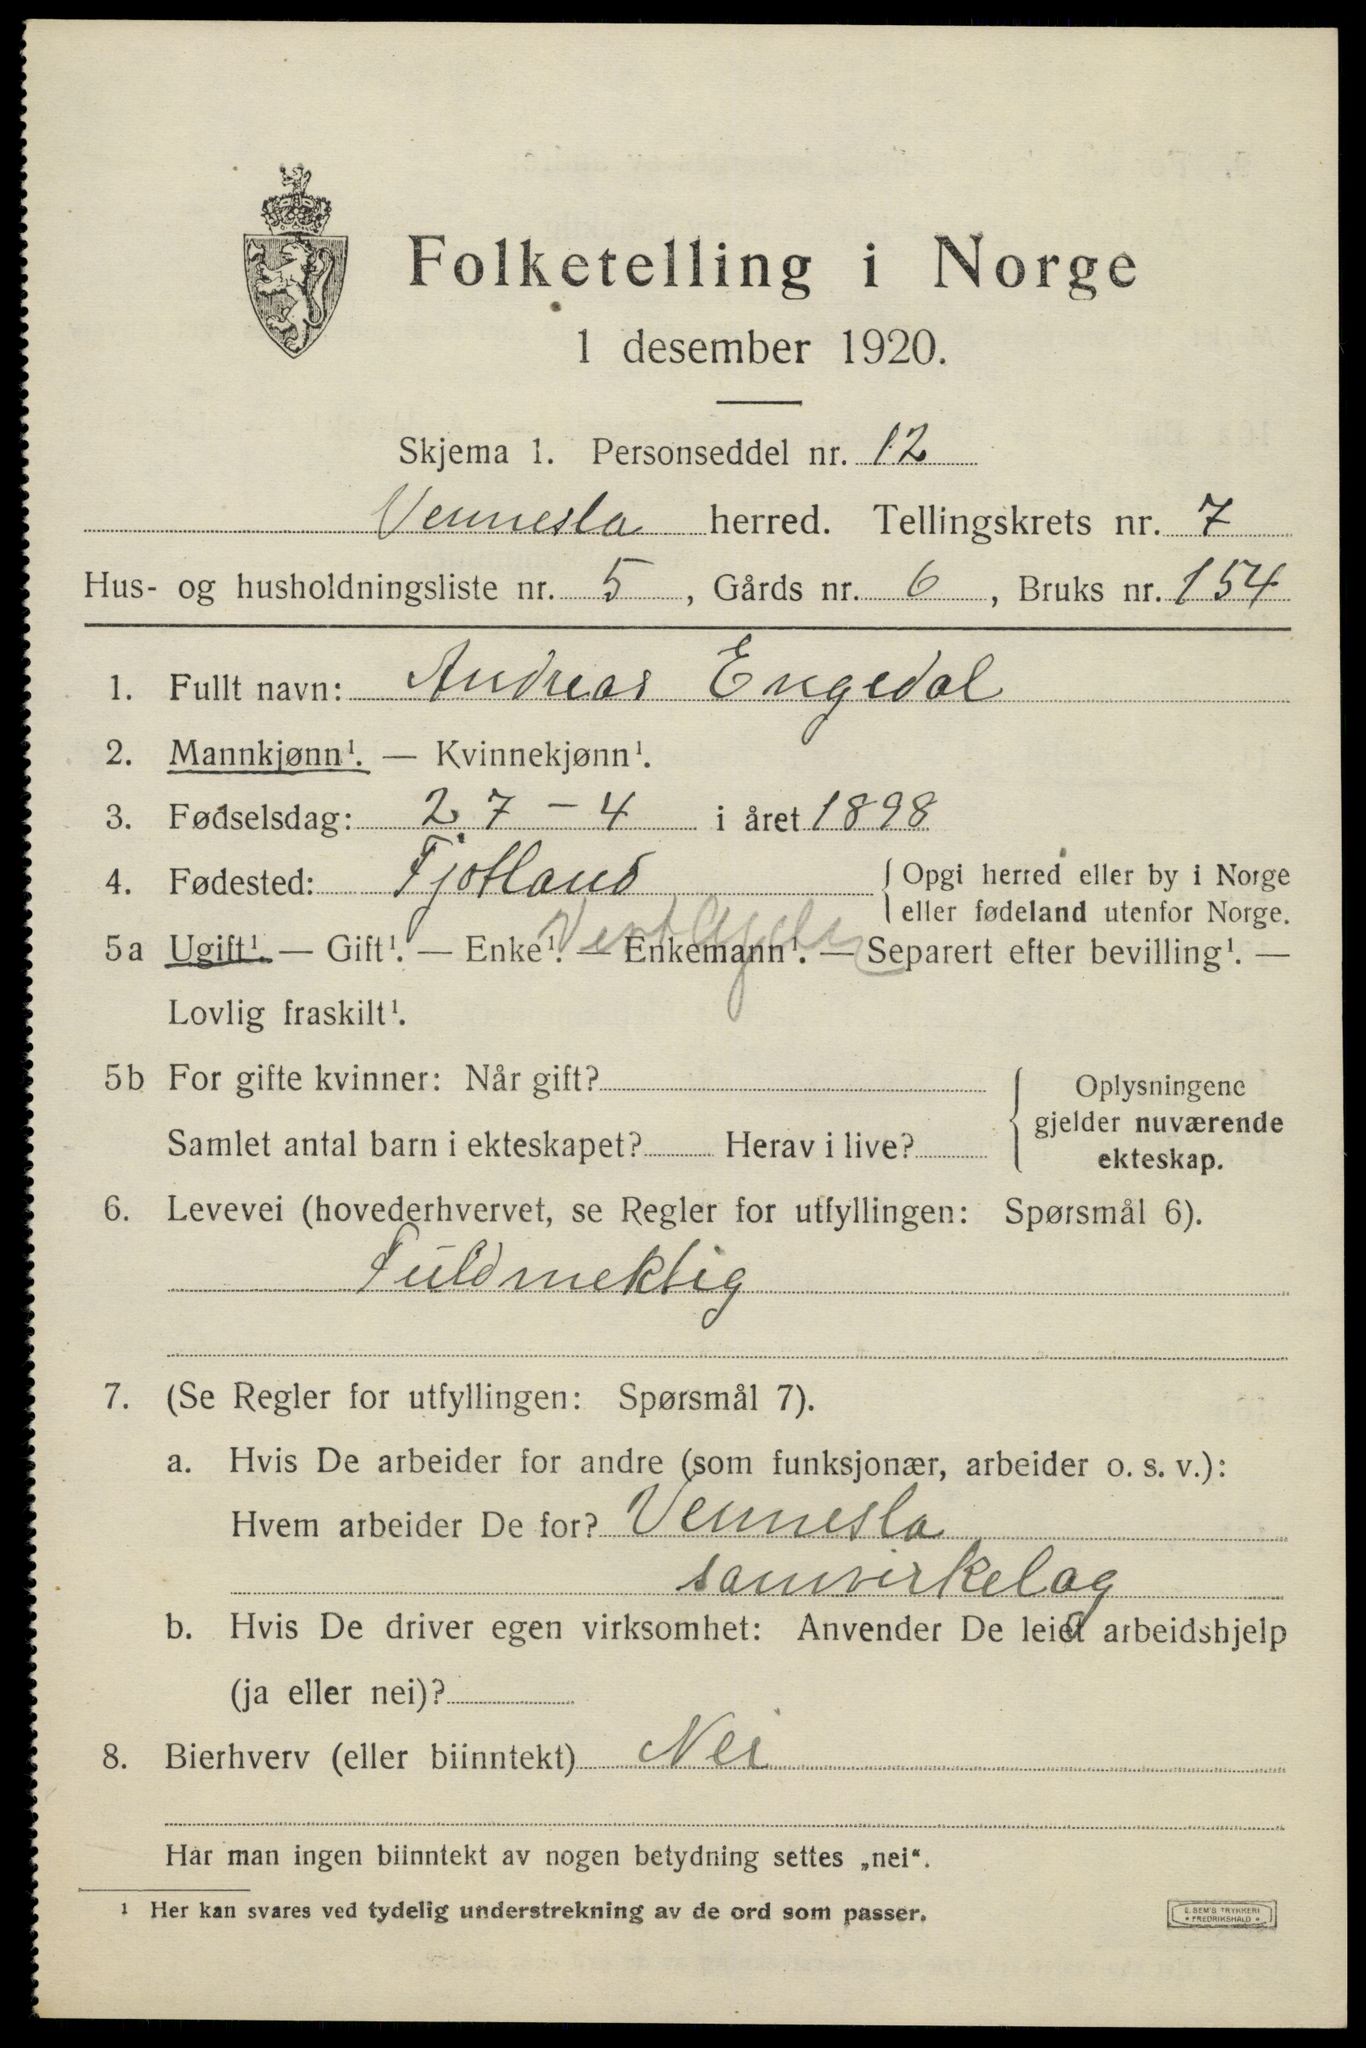 Folketelling i Norge
1 desember 1920.
Skjema 1. Personseddel nr. 12
Vennesla herred. Tellingskrets nr. 7
Hus- og husholdningsliste nr. 5, Gårds nr. 6, Bruks nr. 154
1. Fullt navn: Andreas Engedal
2. Mannkjønn¹. — Kvinnekjønn¹.
3. Fødselsdag: 27 - 4 i året 1898
4. Fødested: Fjotland { Opgi herred eller by i Norge
eller fødeland utenfor Norge.
Vest Agder
5a Ugift¹. — Gift¹. — Enke¹. — Enkemann¹. — Separert efter bevilling¹. —
Lovlig fraskilt¹.
5b For gifte kvinner: Når gift? { Oplysningene
gjelder nuværende
Samlet antal barn i ekteskapet? Herav i live? ekteskap.
6. Levevei (hovederhvervet, se Regler for utfyllingen: Spørsmål 6).
Fuldmektig
7. (Se Regler for utfyllingen: Spørsmål 7).
a. Hvis De arbeider for andre (som funksjonær, arbeider o. s. v.):
Hvem arbeider De for? Vennesla
samvirkelag
b. Hvis De driver egen virksomhet: Anvender De leiet arbeidshjelp
(ja eller nei)?
8. Bierhverv (eller biinntekt) Nei
Har man ingen biinntekt av nogen betydning settes „nei“.
¹ Her kan svares ved tydelig understrekning av de ord som passer.
E. SEM'S TRYKKERI
• FREDRIKSHALD •